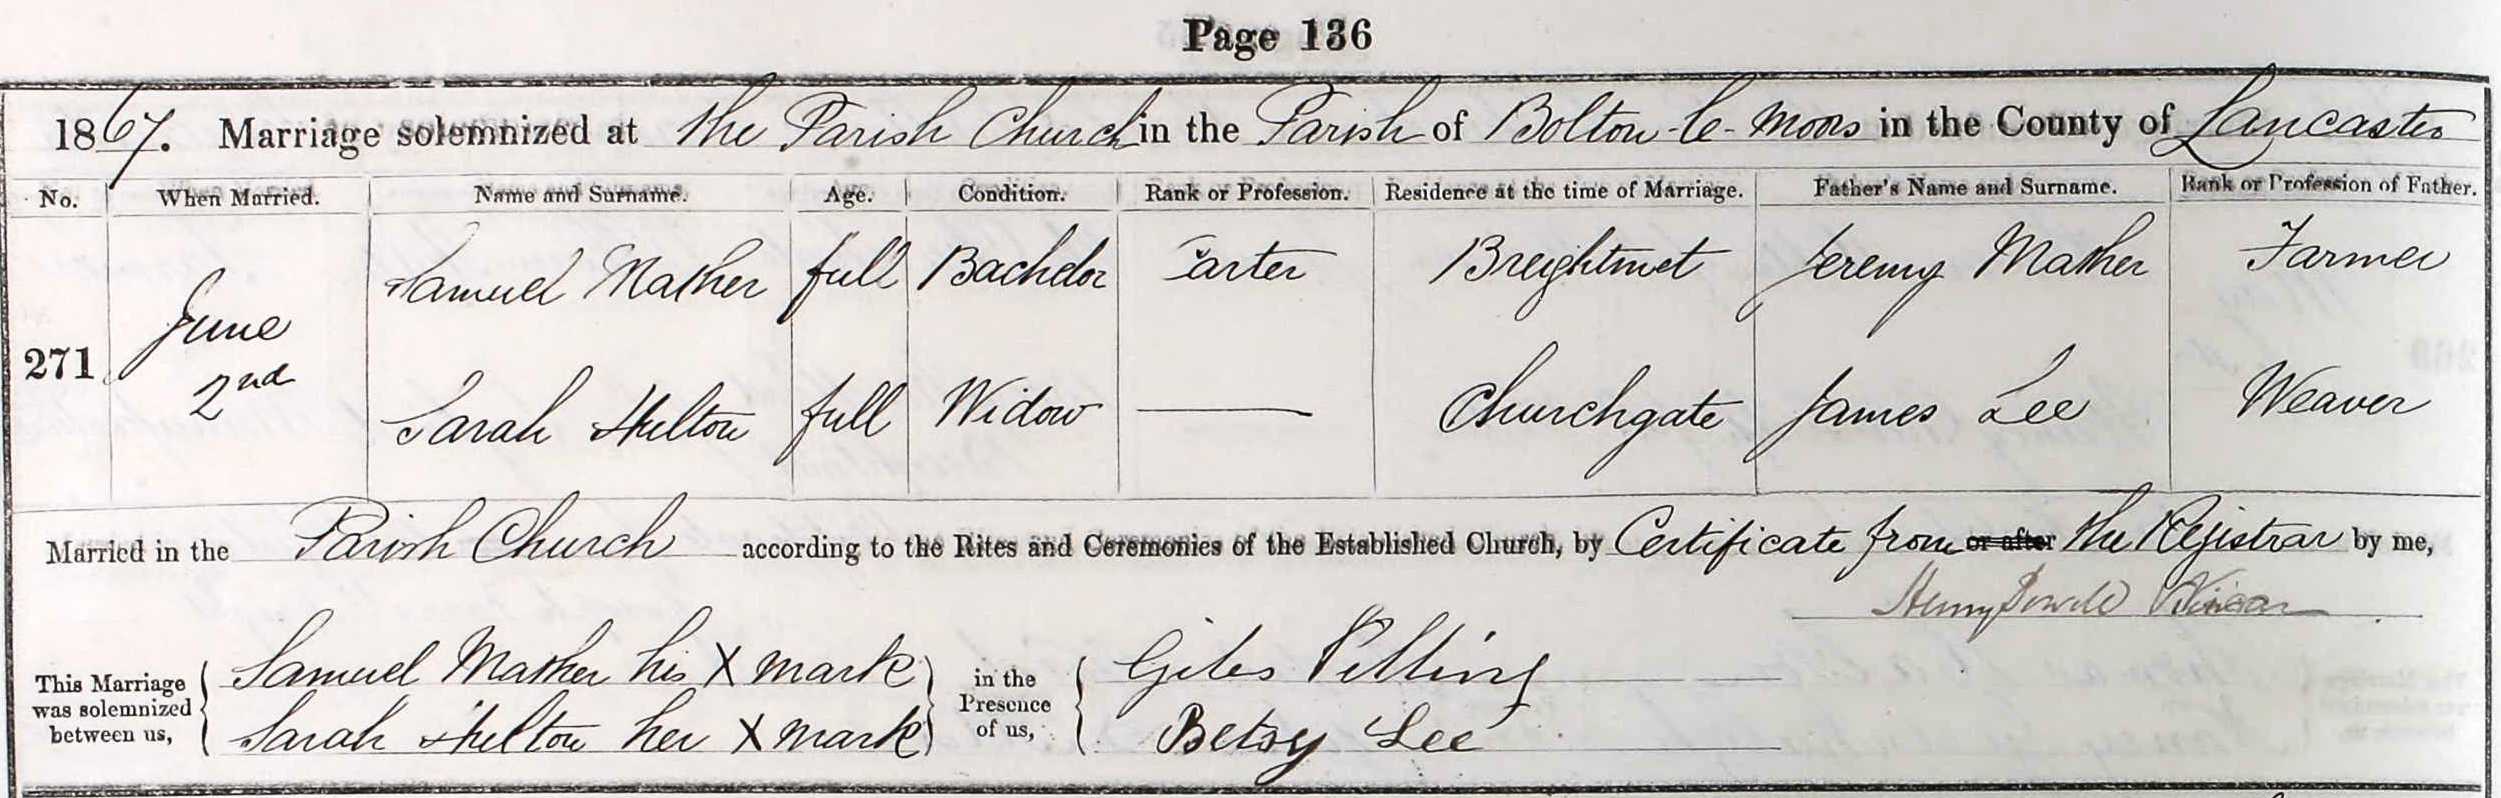 Page 136
1867. Marriage solemnized at the Parish Church in the Parish of Bolton-le-Moors in the County of Lancaster
No. When Married. Name and Surname. Age. Condition. Rank or Profession. Residence at the time of Marriage. Father's Name and Surname. Rank or Profession of Father.
Samuel Mather full Bachelor Carter Breightmet Jeremy Mather Farmer
271 June 2nd
Sarah Hulton full Widow — Churchgate James Lee Weaver
Married in the Parish Church according to the Rites and Ceremonies of the Established Church, by Certificate from or after the Registrar by me,
Henry Powell Vicar
This Marriage was solemnized between us, Samuel Mather his X mark in the Presence of us, Giles Pilling
Sarah Hulton her X mark Betsy Lee